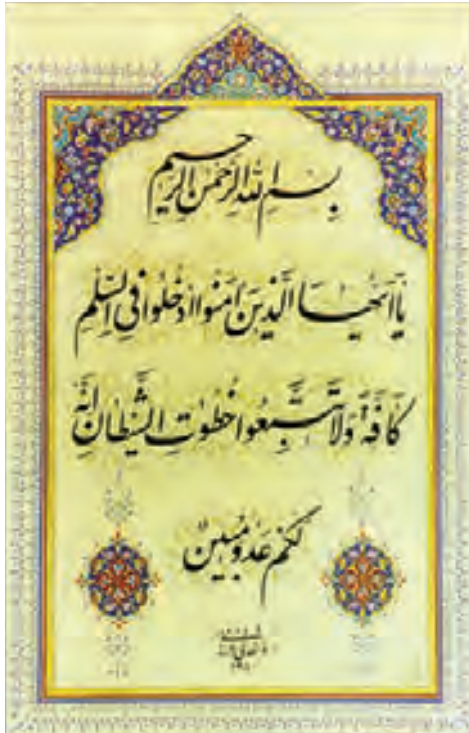 بسم الله الرحمن الرحیم
یا أیها الذین آمنوا ادخلوا فی السلم
کافةً ولا تتبعوا خطوت الشیطان إنه
لکم عدو مبین